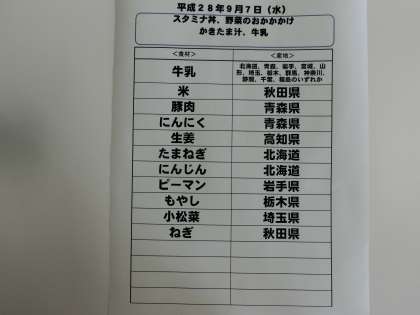 平成28年9月7日（水）
スタミナ丼、野菜のおかかかけ
かきたま汁、牛乳
<食材> <産地>
牛乳 北海道、青森、岩手、宮城、山
形、埼玉、栃木、群馬、神奈川、
静岡、千葉、福島のいずれか
米 秋田県
豚肉 青森県
にんにく 青森県
生姜 高知県
たまねぎ 北海道
にんじん 北海道
ピーマン 岩手県
もやし 栃木県
小松菜 埼玉県
ねぎ 秋田県